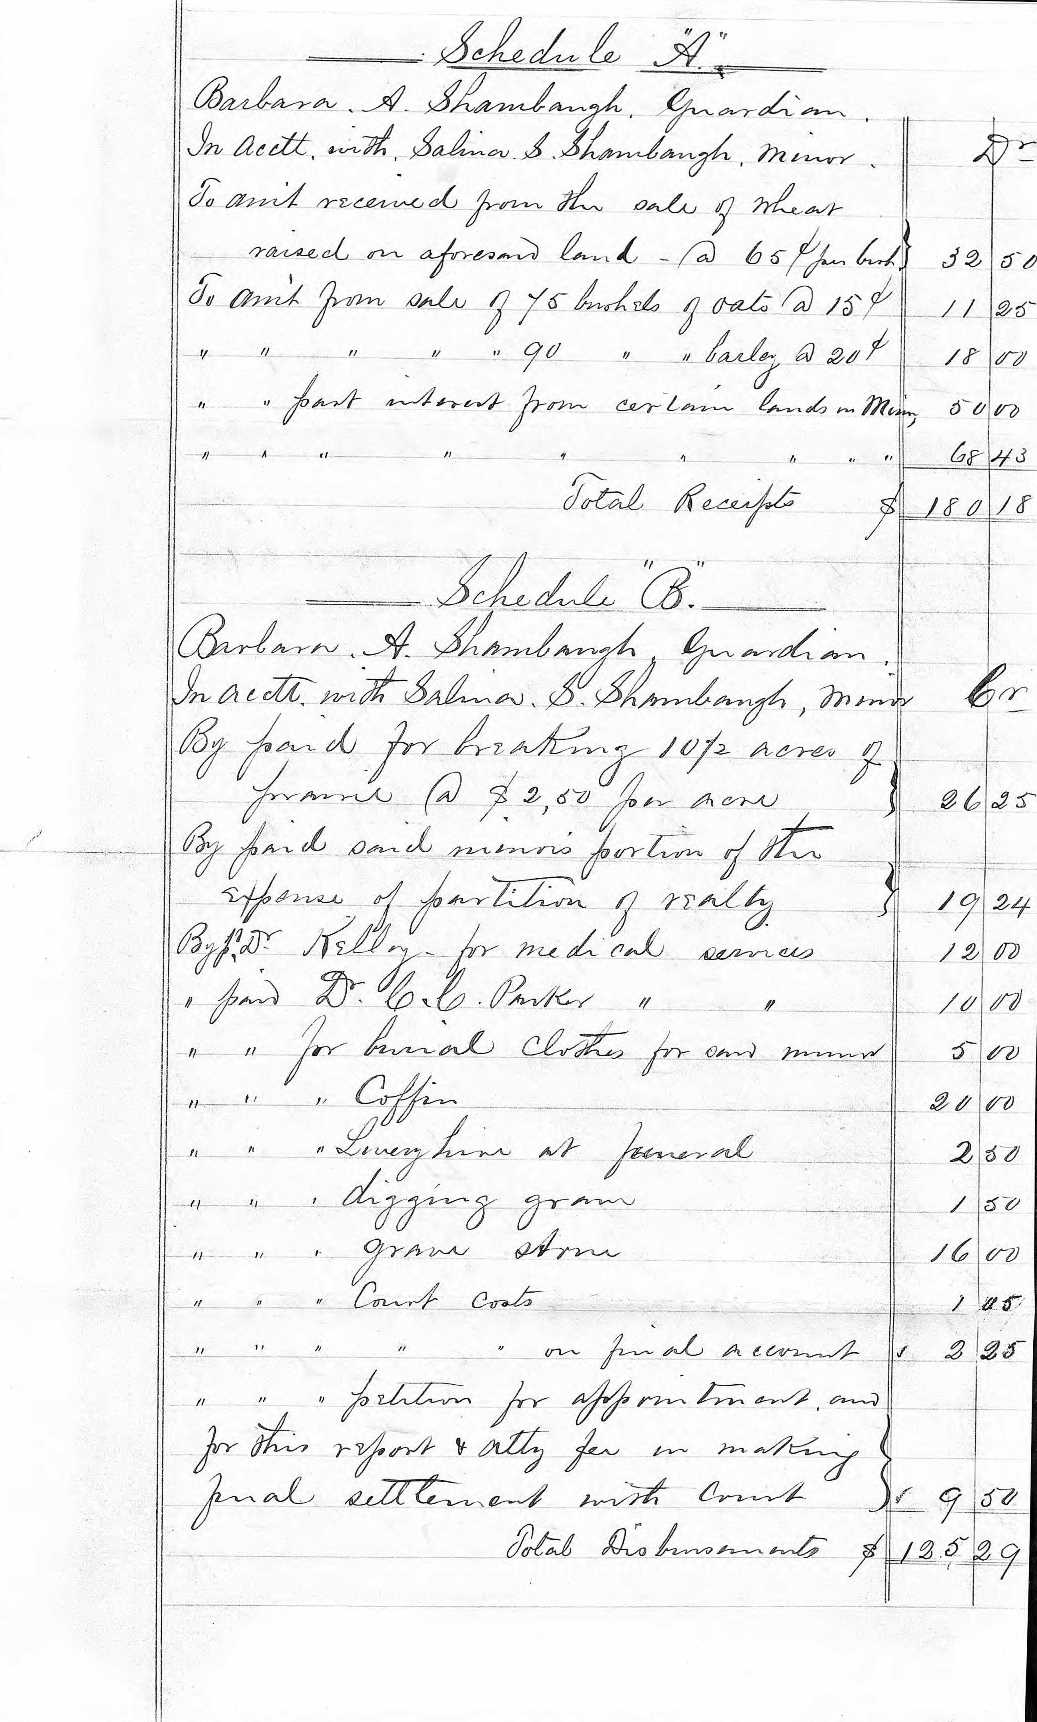 Schedule "A".
Barbara. A. Shambaugh. Guardian.
In acctt. with. Salina. S. Shambaugh, minor. Dr
To am't received from the sale of wheat
raised on aforesaid land - @ 65¢ per bush 32 50
To am't from sale of 75 bushels of oats @ 15¢ 11 25
" " " " " 90 " " barley @ 20¢ 18 00
" " part interest from certain lands in Minn, 50 00
" " " " " " " " " 68 43
Total Receipts $ 180 18
Schedule "B".
Barbara. A. Shambaugh, Guardian.
In acctt. with Salina. S. Shambaugh, minor Cr
By paid for breaking 10 1/2 acres of
prairie @ $2,50 per acre 26 25
By paid said minors portion of the
expense of partition of realty. 19 24
By p'd. Dr Kelloy - for medical services 12 00
" paid Dr. C. C. Parker " " 10 00
" " for burial clothes for said minor 5 00
" " " Coffin 20 00
" " " Livery hire at funeral 2 50
" " " digging grave 1 50
" " " grave stone 16 00
" " " Court costs 1 05
" " " " " on final account 2 25
" " " petition for appointment, and
for this report & atty fee in making
final settlement with Court 9 50
Total Disbursements $ 125,29